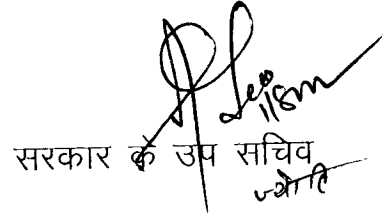 सरकार के उप सचिव
ज्योति